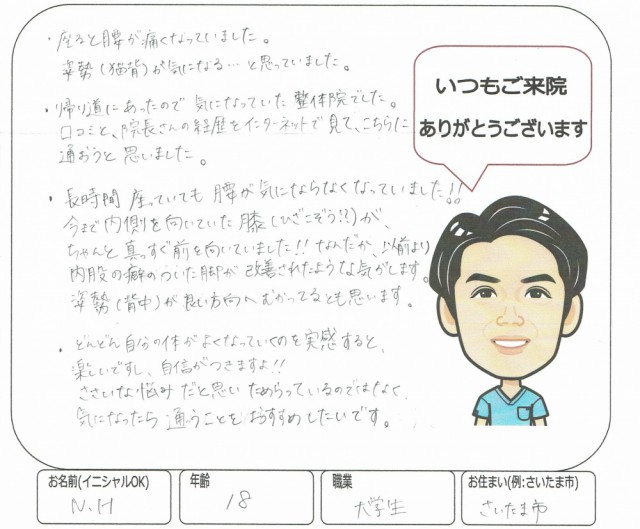 ・座ると腰が痛くなっていました。
姿勢(猫背)が気になる…と思っていました。
・帰り道にあったので気になっていた整体院でした。
口コミと、院長さんの経歴をインターネットで見て、こちらに
通おうと思いました。
・長時間座っていても腰が気にならなくなっていました!!
今まで内側を向いていた膝(ひざこぞう!?)が、
ちゃんと真っすぐ前を向いていました!!なんだか、以前より
内股の癖のついた脚が改善されたような気がします。
姿勢(背中)が良い方向へむかってるとも思います。
・どんどん自分の体がよくなっていくのを実感すると、
楽しいですし、自信がつきますよ!!
ささいな悩みだと思いためらっているのではなく
気になったら通うことをおすすめしたいです。
いつもご来院
ありがとうございます
お名前(イニシャルOK)
N.H
年齢
18
職業
大学生
お住まい(例:さいたま市)
さいたま市